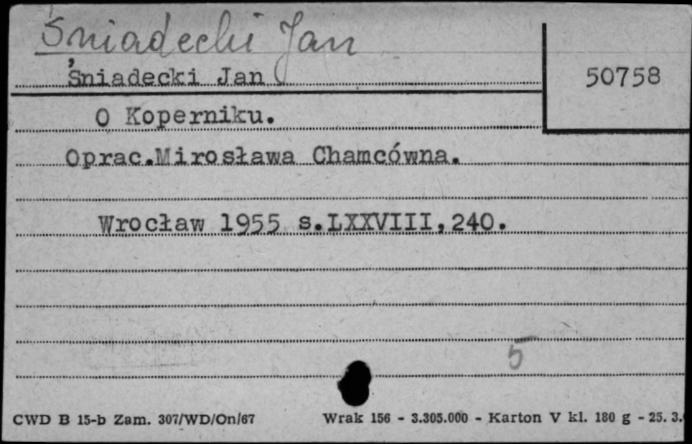 Śniadecki Jan
Śniadecki Jan
50758
O Koperniku.
Oprac.Mirosława Chamcówna.
Wrocław 1955 s.LXXVIII,240.
5
CWD B 15-b Zam. 307/WD/On/67 Wrak 156 - 3.305.000 - Karton V kl. 180 g - 25. 3.